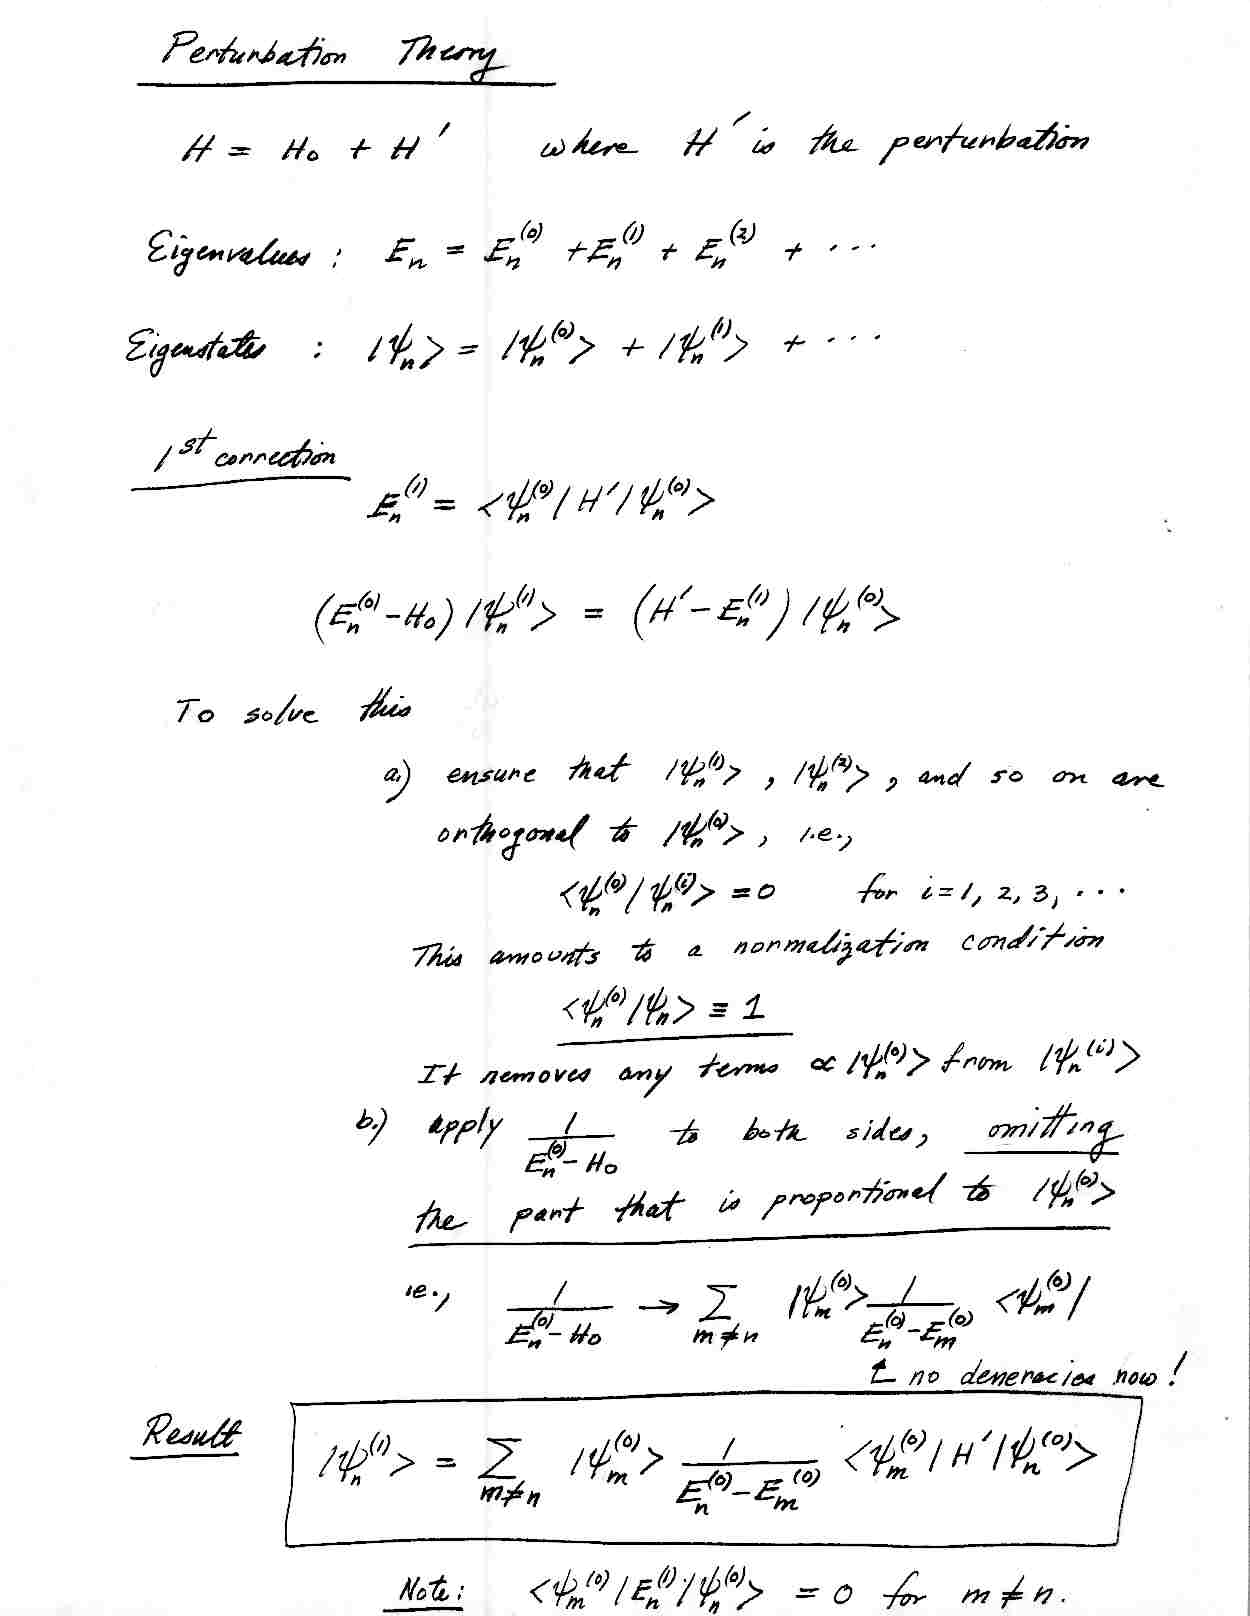 Perturbation Theory
H = H₀ + H′ where H′ is the perturbation
Eigenvalues : Eₙ = Eₙ⁽⁰⁾ + Eₙ⁽¹⁾ + Eₙ⁽²⁾ + ···
Eigenstates : |ψₙ> = |ψₙ⁽⁰⁾> + |ψₙ⁽¹⁾> + ···
1ˢᵗ correction
Eₙ⁽¹⁾ = <ψₙ⁽⁰⁾| H′ |ψₙ⁽⁰⁾>
(Eₙ⁽⁰⁾ - H₀) |ψₙ⁽¹⁾> = (H′ - Eₙ⁽¹⁾) |ψₙ⁽⁰⁾>
To solve this
a.) ensure that |ψₙ⁽¹⁾>, |ψₙ⁽²⁾>, and so on are
orthogonal to |ψₙ⁽⁰⁾>, i.e.,
<ψₙ⁽⁰⁾|ψₙ⁽ⁱ⁾> = 0 for i = 1, 2, 3, ···
This amounts to a normalization condition
<ψₙ⁽⁰⁾|ψₙ> ≡ 1
It removes any terms ∝ |ψₙ⁽⁰⁾> from |ψₙ⁽ⁱ⁾>
b.) apply 1/(Eₙ⁽⁰⁾ - H₀) to both sides, omitting
the part that is proportional to |ψₙ⁽⁰⁾>
i.e., 1/(Eₙ⁽⁰⁾ - H₀) → Σ_{m≠n} |ψₘ⁽⁰⁾> 1/(Eₙ⁽⁰⁾ - Eₘ⁽⁰⁾) <ψₘ⁽⁰⁾|
↑ no deneracies now!
Result |ψₙ⁽¹⁾> = Σ_{m≠n} |ψₘ⁽⁰⁾> 1/(Eₙ⁽⁰⁾ - Eₘ⁽⁰⁾) <ψₘ⁽⁰⁾| H′ |ψₙ⁽⁰⁾>
Note: <ψₘ⁽⁰⁾| Eₙ⁽¹⁾ |ψₙ⁽⁰⁾> = 0 for m ≠ n.